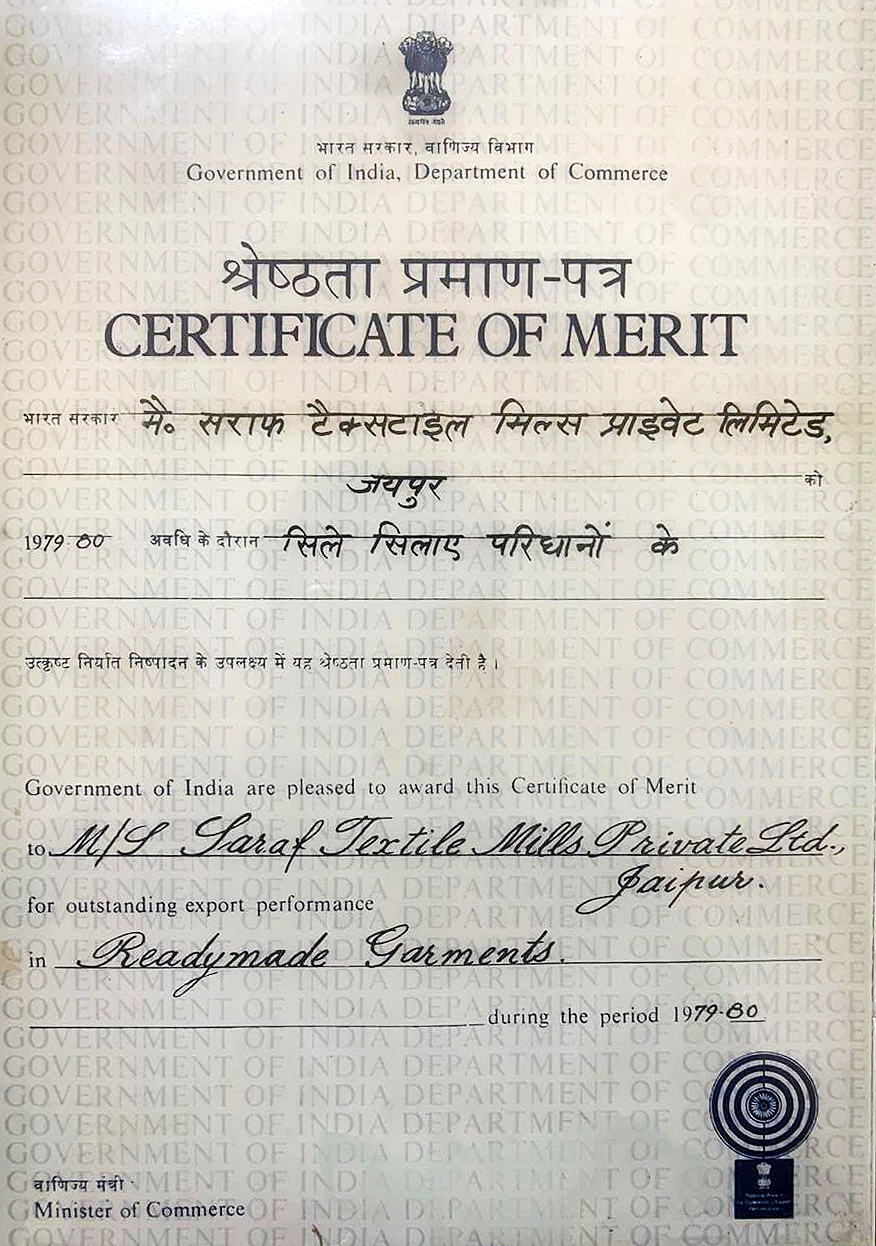 सत्यमेव जयते
भारत सरकार, वाणिज्य विभाग
Government of India, Department of Commerce
श्रेष्ठता प्रमाण-पत्र
CERTIFICATE OF MERIT
भारत सरकार मै० सराफ टैक्सटाइल मिल्स प्राइवेट लिमिटेड,
जयपुर को
1979-80 अवधि के दौरान सिले सिलाए परिधानों के
उत्कृष्ट निर्यात निष्पादन के उपलक्ष्य में यह श्रेष्ठता प्रमाण-पत्र देती है।
Government of India are pleased to award this Certificate of Merit
to M/S Saraf Textile Mills Private Ltd.,
Jaipur.
for outstanding export performance
in Readymade Garments.
during the period 1979-80
वाणिज्य मंत्री
Minister of Commerce